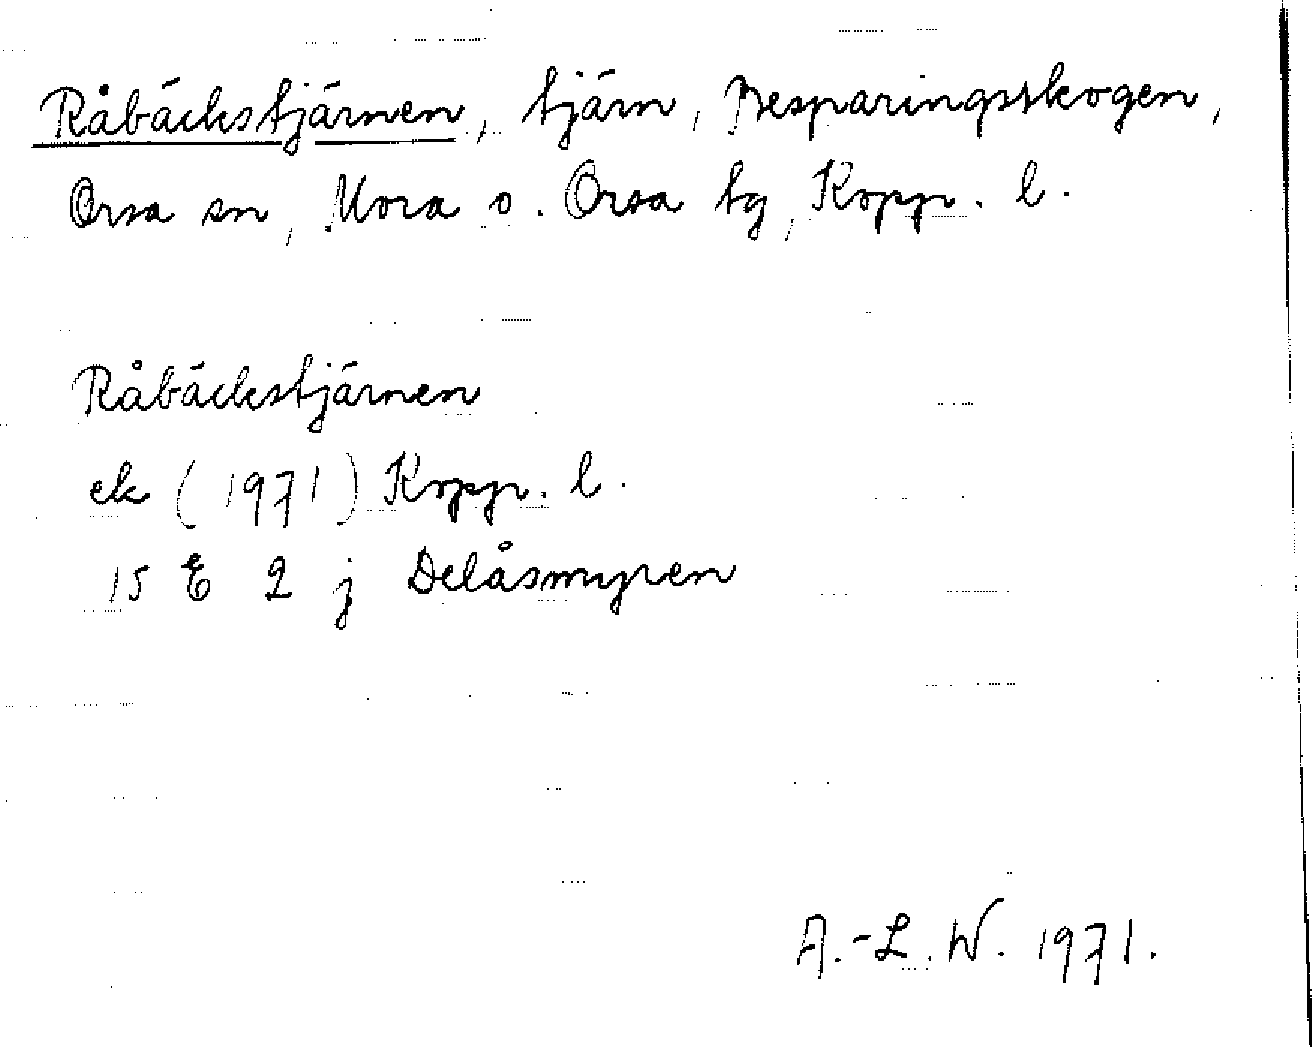 Råbäckstjärnen, tjärn, Besparingsskogen,
Orsa sn, Mora o. Orsa tg, Kopp. l.
Råbäckstjärnen
ek (1971) Kopp. l.
15 E 2 j Delåsmyren
A.-L. W. 1971.